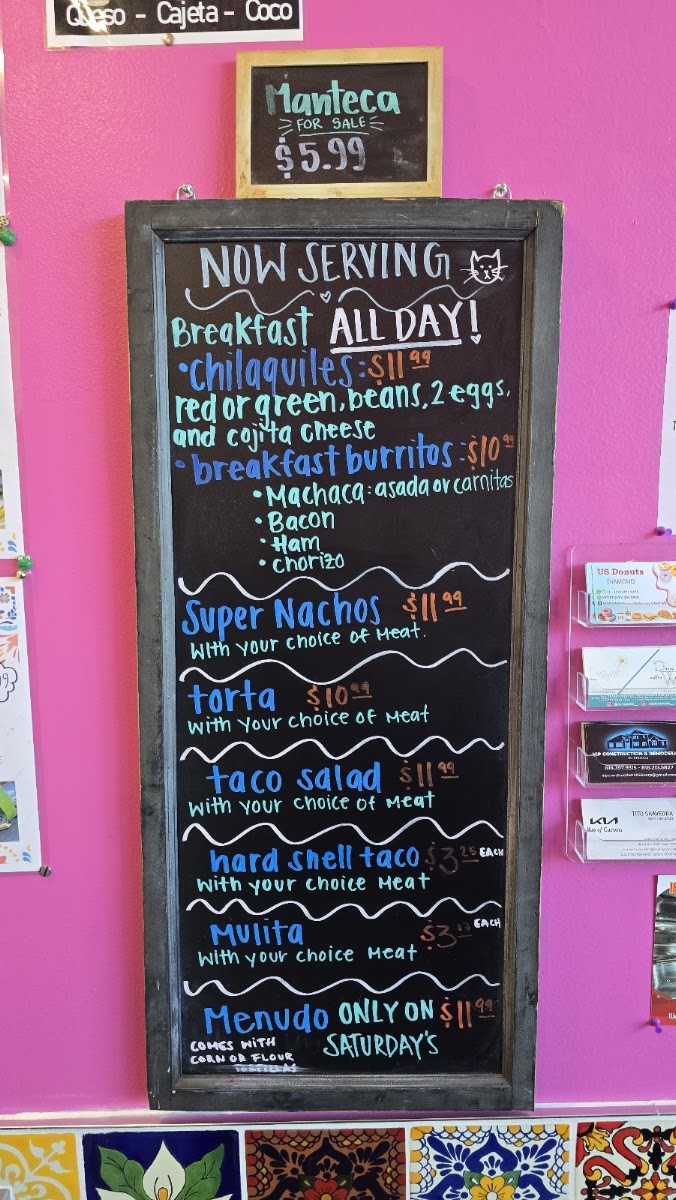 Queso - Cajeta - Coco
Manteca
FOR SALE
$5.99
NOW SERVING
Breakfast ALL DAY!
•Chilaquiles: $11.99
red or green, beans, 2 eggs,
and cojita cheese
• breakfast burritos: $10.99
• Machaca: asada or carnitas
• Bacon
• Ham
• Chorizo
Super Nachos $11.99
With your choice of Meat.
torta $10.99
With your choice of Meat
taco salad $11.99
With your choice of Meat
hard shell taco $3.25 EACH
With your choice Meat
Mulita EACH
With your choice Meat
Menudo ONLY ON $11.99
SATURDAY'S
COMES WITH
CORN OR FLOUR
TORTILLAS
US Donuts
DIAMOND
CONSTRUCTION & REMODELING
KIA
TITO SAAVEDRA
Kia of Canyon